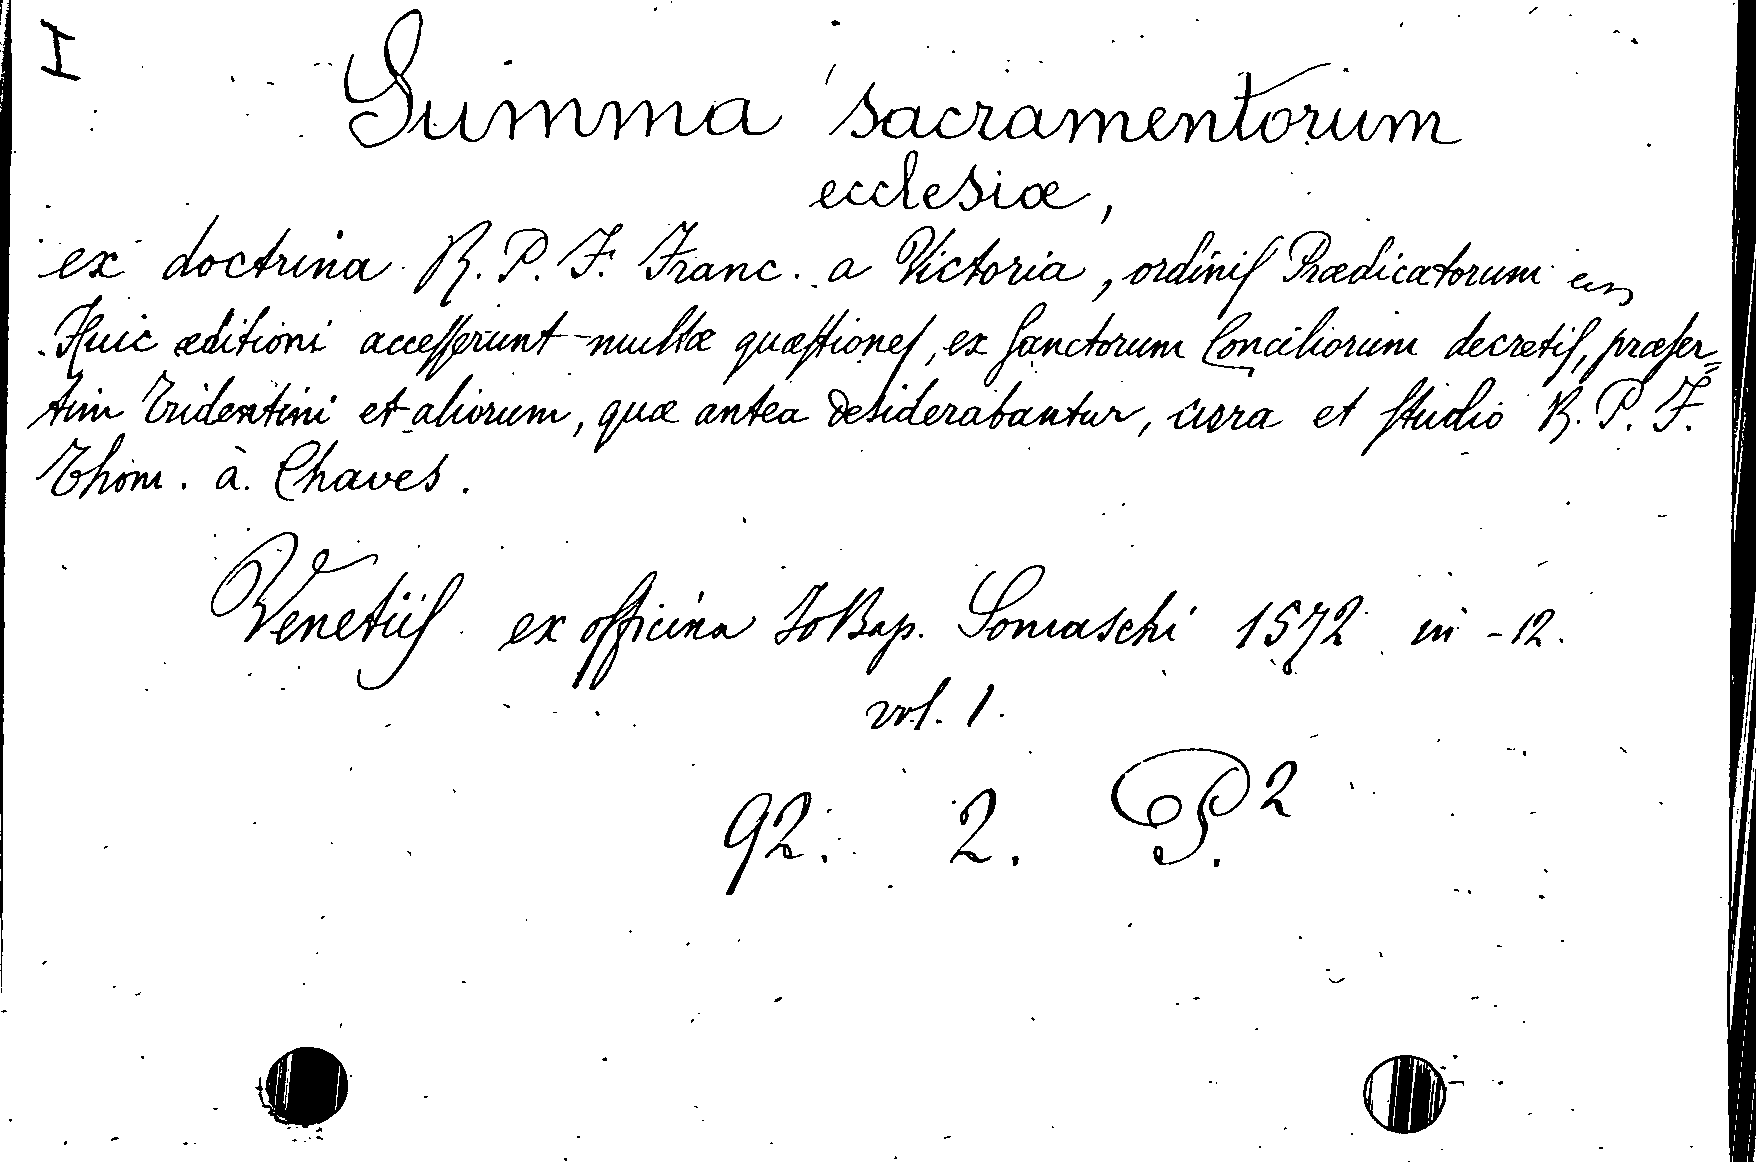 I
Summa sacramentorum
ecclesiæ,
ex doctrina R. P. F. Franc. a Victoria, ordinis Prædicatorum
Huic æditioni accesserunt multæ quæstiones, ex Sanctorum Conciliorum decretis, præser=
tim Tridentini et aliorum, quæ antea desiderabantur, cura et studio R. P. F.
Thom. à Chaves.
Venetiis ex officina Jo Bap. Somaschi 1572 in-12.
vol. 1.
92. 2. P.²